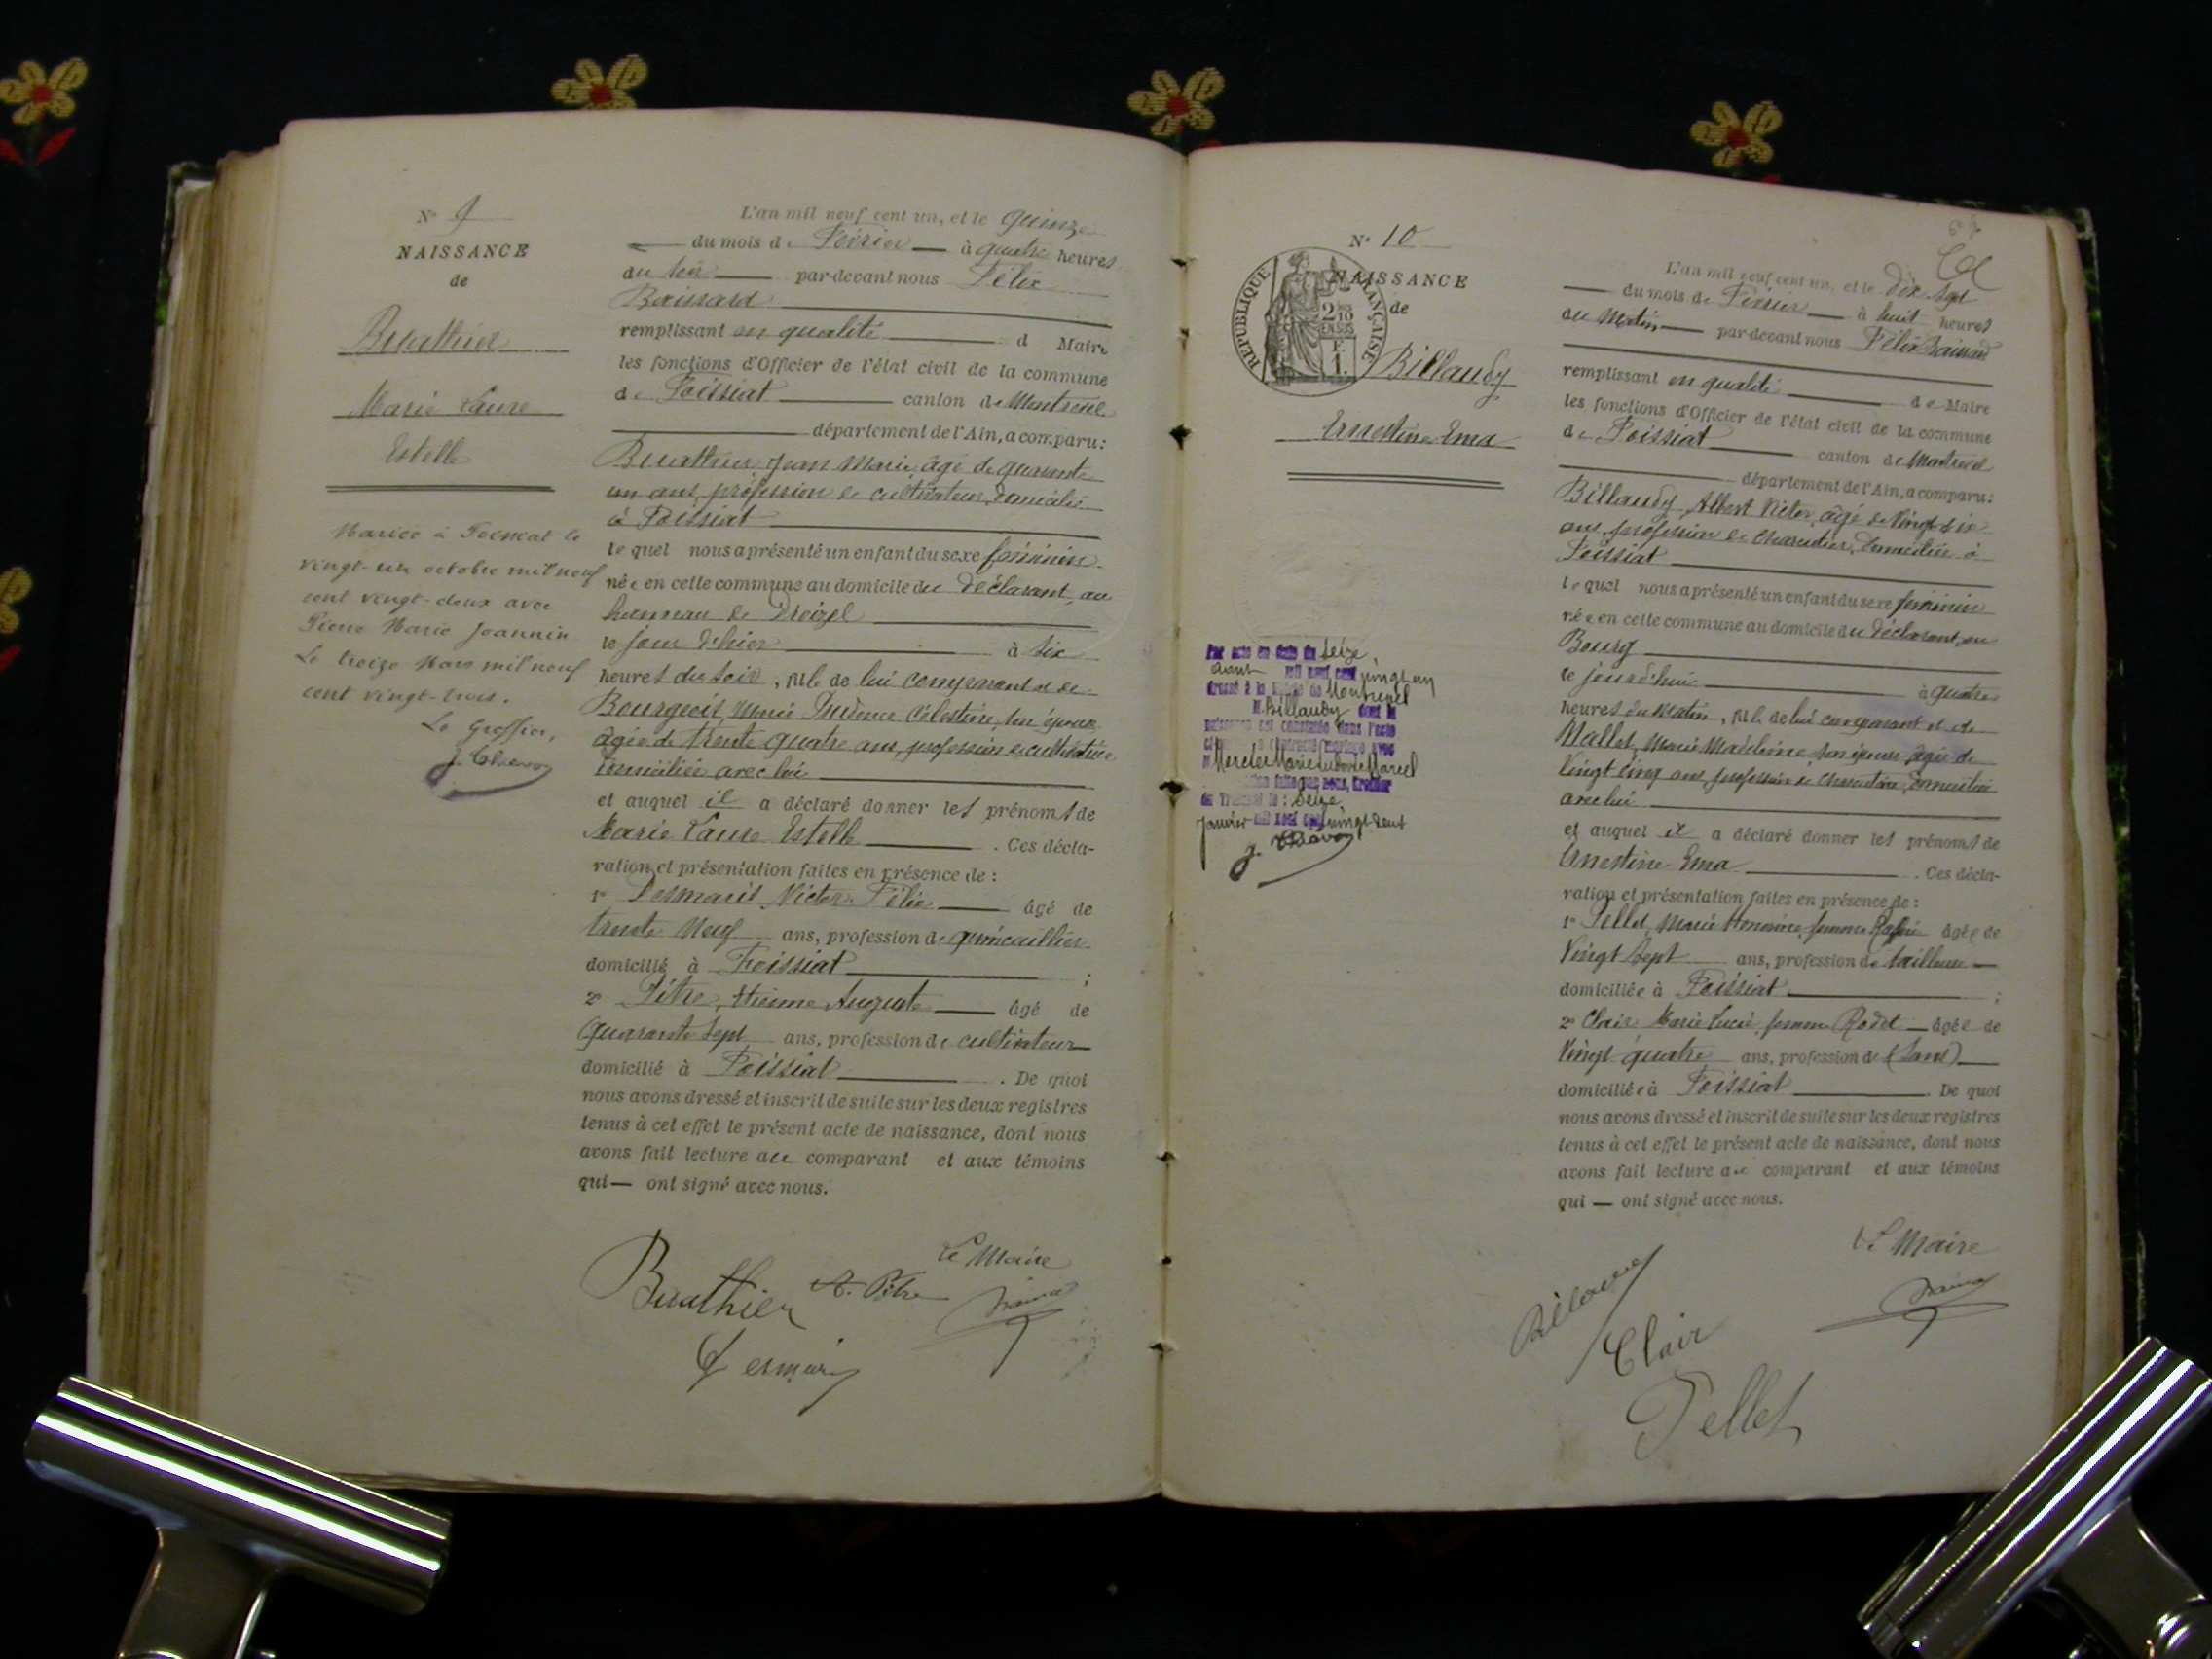 N° 9
NAISSANCE
de
Buathier
Marie Laure
Estelle
Mariée à Foissiat le
vingt-un octobre mil neuf
cent vingt-deux avec
Pierre Marie Joannin
Le treize Mars mil neuf
cent vingt-trois.
Le Greffier,
L'an mil neuf cent un, et le quinze
du mois de Février à quatre heures
du soir par-devant nous Félix
remplissant en qualité d Maire
les fonctions d'Officier de l'état civil de la commune
de Foissiat canton de Montrevel
département de l'Ain, a comparu:
Buathier, Jean Marie âgé de quarante
un ans, profession de cultivateur, domicilié
à Foissiat
le quel nous a présenté un enfant du sexe féminin
née en cette commune au domicile du déclarant, au
hameau de
le jour d'hier à six
heures du soir, fille de lui comparant et de
Bourgeois, Marie Prudence Célestine, son épouse
âgée de trente quatre ans, profession de cultivatrice
domiciliée avec lui
et auquel il a déclaré donner les prénoms de
Marie Laure Estelle . Ces décla-
ration et présentation faites en présence de :
1° Desmaris Victor Félix âgé de
trente neuf ans, profession de quincaillier
domicilié à Foissiat ;
2° Pitre, Etienne Auguste âgé de
quarante sept ans, profession de cultivateur
domicilié à Foissiat . De quoi
nous avons dressé et inscrit de suite sur les deux registres
tenus à cet effet le présent acte de naissance, dont nous
avons fait lecture au comparant et aux témoins
qui — ont signé avec nous.
Le Maire
Buathier A. Pitre
Desmaris
N° 10
NAISSANCE
de
REPUBLIQUE FRANÇAISE
Billaudy
Ernestine Ema
Par acte en date du seize
mil neuf cent vingt un
dressé à la Mairie de Montrevel
M. Billaudy dont la
naissance est constatée dans l'acte
a contracté mariage avec
Marcel
seize
Janvier mil neuf cent vingt deux
L'an mil neuf cent un, et le dix sept
du mois de Février à huit heures
du Matin par-devant nous Félix
remplissant en qualité de Maire
les fonctions d'Officier de l'état civil de la commune
de Foissiat canton de Montrevel
département de l'Ain, a comparu:
Billaudy, Albert Victor, âgé de vingt six
ans, profession de charcutier, domicilié à
Foissiat
le quel nous a présenté un enfant du sexe féminin
née en cette commune au domicile du déclarant au
Bourg
ce jourd'hui à quatre
heures du matin, fille de lui comparant et de
Mallet, Marie Madeleine son épouse, âgée de
vingt cinq ans, profession de charcutière, domiciliée
avec lui
et auquel il a déclaré donner les prénoms de
Ernestine Ema . Ces décla-
ration et présentation faites en présence de :
1° Pellet, Marie Honorine, femme âgée de
Vingt sept ans, profession de tailleuse
domiciliée à Foissiat ;
2° Clair Marie Lucie, femme Rodet âgée de
Vingt quatre ans, profession de (sans)
domiciliée à Foissiat . De quoi
nous avons dressé et inscrit de suite sur les deux registres
tenus à cet effet le présent acte de naissance, dont nous
avons fait lecture au comparant et aux témoins
qui — ont signé avec nous.
Le Maire
Clair
Pellet